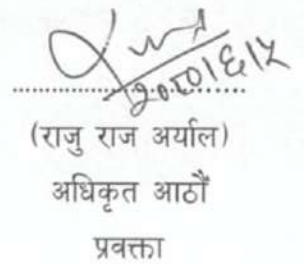 २०८०।६।५
(राजु राज अर्याल)
अधिकृत आठौं
प्रवक्ता